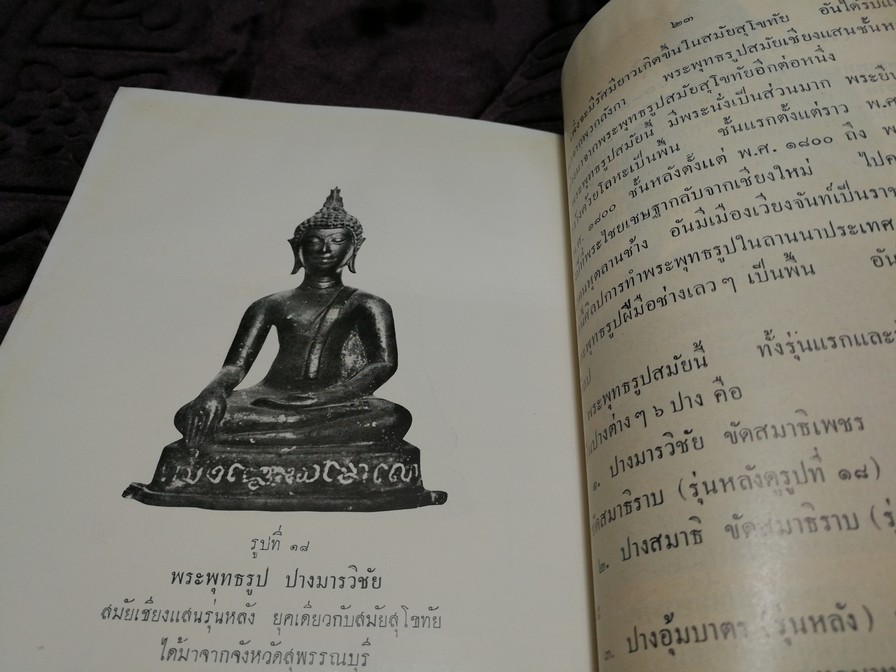 รูปที่ ๑๘
พระพุทธรูป ปางมารวิชัย
สมัยเชียงแสนรุ่นหลัง ยุคเดียวกับสมัยสุโขทัย
ได้มาจากจังหวัดสุพรรณบุรี
๒๓
มีรัศมียาวเกิดขึ้นในสมัยสุโขทัย อันได้รับ
พวกลังกา พระพุทธรูปสมัยเชียงแสนชั้น
มาจากพระพุทธรูปสมัยสุโขทัยอีกต่อหนึ่ง
พระพุทธรูปสมัยนี้ มีพระนั่งเป็นส่วนมาก
ด้วยโลหะเป็นพื้น ชั้นแรกตั้งแต่ราว พ.ศ.
๑๘๐๐ ชั้นหลังตั้งแต่ พ.ศ. ๑๘๐๐ ถึง
พระไชยเชษฐากลับจากเชียงใหม่ ไป
ลานช้าง อันมีเมืองเวียงจันท์เป็น
ศิลปการทำพระพุทธรูปในลานนาประเทศ
พระพุทธรูปฝีมือช่างเลว ๆ เป็นพื้น อัน
พระพุทธรูปสมัยนี้ ทั้งรุ่นแรกและ
ปางต่าง ๆ ๖ ปาง คือ
๑. ปางมารวิชัย ขัดสมาธิเพชร
ขัดสมาธิราบ (รุ่นหลังดูรูปที่ ๑๘)
๒. ปางสมาธิ ขัดสมาธิราบ
๓. ปางอุ้มบาตร (รุ่นหลัง)